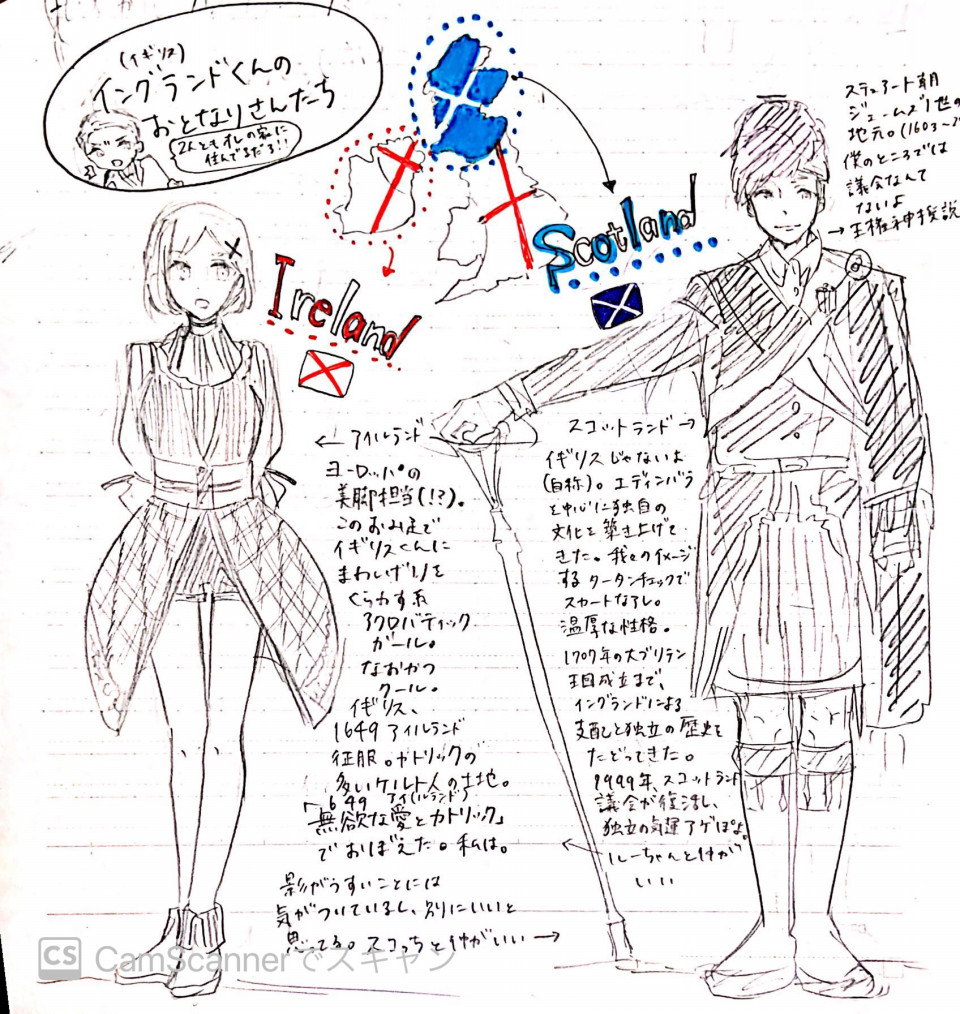 (イギリス)
イングランドくんの
おとなりさんたち
2人ともオレの家に
住んでるだろ!!
Ireland
Scotland
ステュアート朝
ジェームズ1世の
地元。(1603~
僕のところでは
議会なんて
ないよ
→王権神授説
← アイルランド
ヨーロッパの
美脚担当(!?)。
このおみ足で
イギリスくんに
まわしげりを
くらわす系
アクロバティック
ガール。
なおかつ
クール。
イギリス、
1649 アイルランド
征服。カトリックの
多いケルト人の土地。
「1649 アイ(ルランド)
無欲な愛とカトリック」
でおぼえた。私は。
影がうすいことには
気がついているし、別にいいと
思ってる。スコっちと仲がいい →
スコットランド →
イギリスじゃないよ
(自称)。エディンバラ
を中心に独自の
文化を築き上げて
きた。我々のイメージ
するタータンチェックで
スカートなアレ。
温厚な性格。
1707年の大ブリテン
王国成立まで、
イングランドによる
支配と独立の歴史を
たどってきた。
1999年、スコットランド
議会が復活し、
独立の気運アゲぽよ。
← ルーちゃんと仲が
いい
CS CamScannerでスキャン